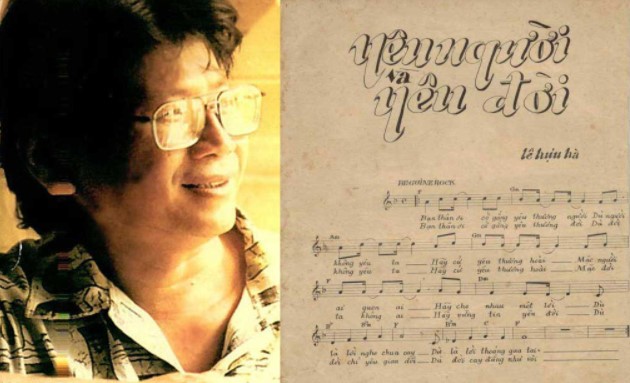 Yêu người
và
yêu đời
lê hựu hà
BEGUINE ROCK
F Gm
Bạn thân ơi cố gắng yêu thương người Dù người
Bạn thân ơi cố gắng yêu thương đời Dù đời
Am Gm
không yêu ta Hãy cố yêu thương hoài Mặc người
không yêu ta Hãy cố yêu thương hoài Mặc đời
F Dm
ai quen ai Hãy cho nhau một lời Dù
ta không ai Hãy vững tin yêu đời Dù
Bb F
là lời nghe chua cay Dù là lời thoáng qua tai
đời chỉ yêu gian dối Dù đời cay đắng như vôi